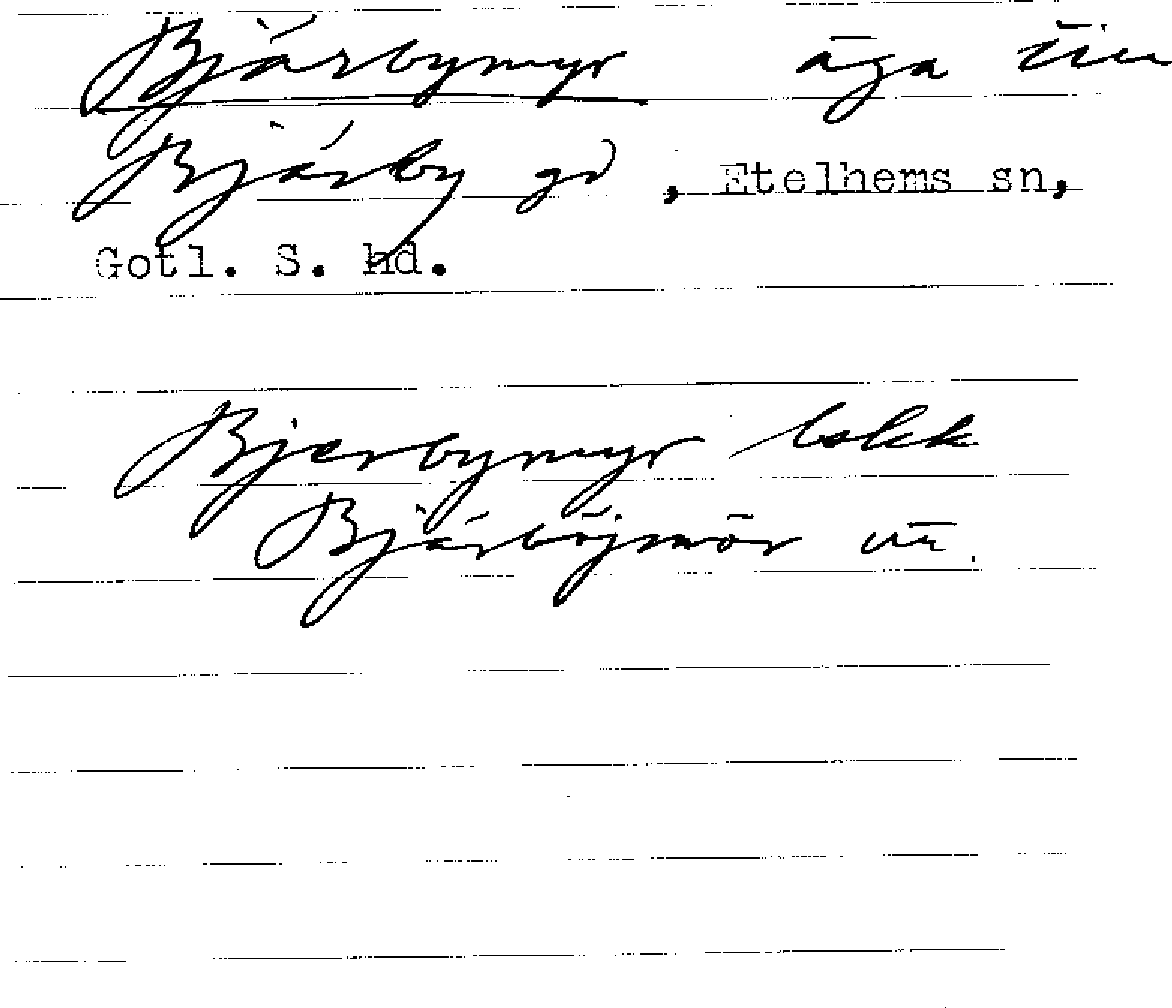 Bjärbymyr äga till
Bjärby gd, Etelhems sn,
Gotl. S. hd.
Bjerbymyr lokk
Bjärböjmör